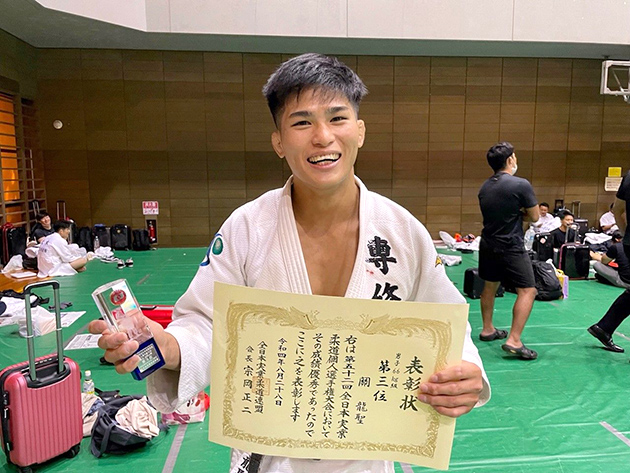 表彰状
男子66㎏級
第三位
關 龍聖
右は第五十二回全日本実業
柔道個人選手権大会において
その成績優秀であったので
ここに之を表彰します
令和四年八月二十八日
全日本実業柔道連盟
会長 宗岡 正二
専修